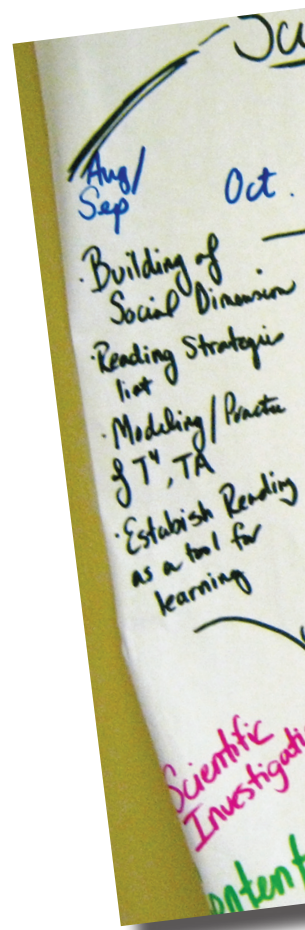 Aug/
Sep
Oct.
· Building of
Social Dimension
· Reading Strategies
list
· Modeling/Practice
of T⁴, TA
· Estabish Reading
as a tool for
learning
Scientific